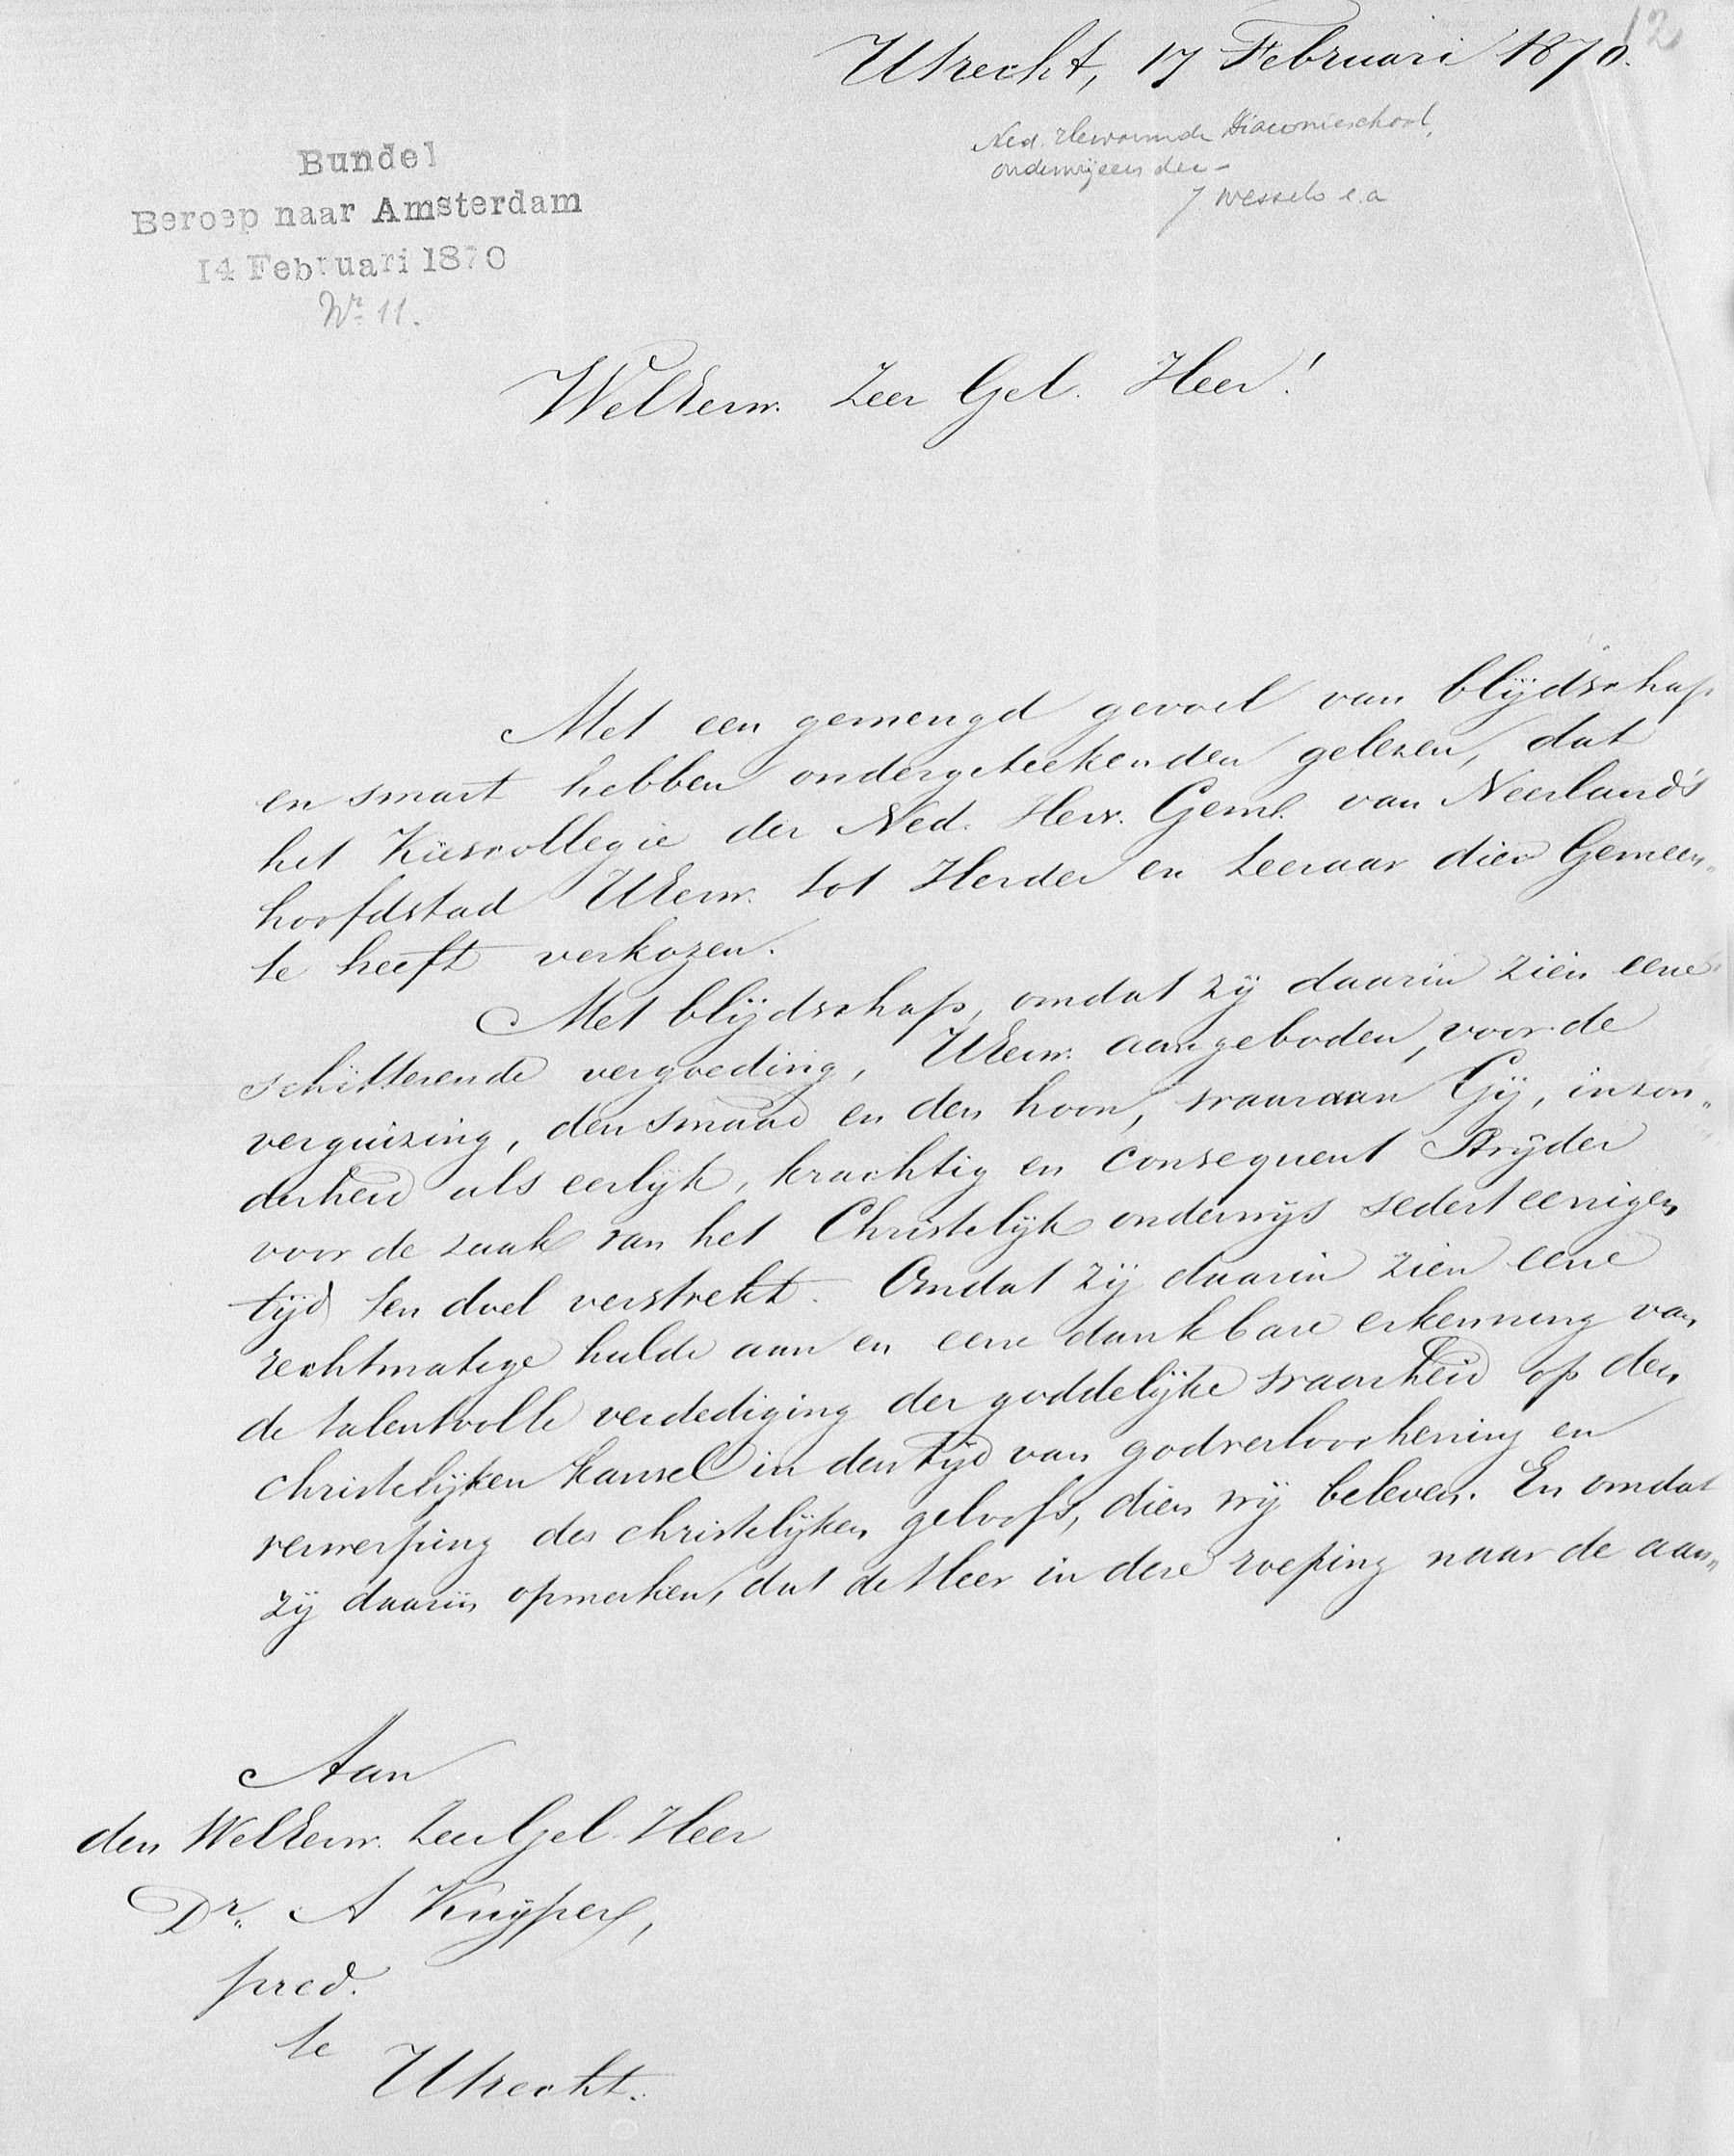 12
Utrecht, 17 Februari 1870.
Ned. Hervormde Diaconieschool,
onderwijzers der -
J Wessels e.a
Bundel
Beroep naar Amsterdam
14 Februari 1870
Nr. 11.
WelEerw. Zeer Gel. Heer!
Met een gemengd gevoel van blijdschap
en smart hebben ondergeteekenden gelezen, dat
het Kiescollegie der Ned. Herv. Geme. van Neerland's
hoofdstad UEerw. tot Herder en Leeraar dier Gemeen„
te heeft verkozen.
Met blijdschap, omdat zij daarin zien eene
schitterende vergoeding, UEerw. aangeboden, voor de
verguizing, den smaad en den hoon, waaraan Gij, inzon„
derheid als eerlijk, krachtig en consequent Strijder
voor de zaak van het Christelijk onderwijs sedert eenigen
tijd ten doel verstrekt. Omdat zij daarin zien eene
rechtmatige hulde aan en eene dankbare erkenning van
de talentvolle verdediging der goddelijke waarheid op den
christelijken kansel in den tijd van godverloochening en
verwerping des christelijken geloofs, dien wij beleven. En omdat
zij daarin opmerken, dat de Heer in deze roeping naar de aan„
Aan
den WelEerw. Zeer Gel. Heer
Dr. A Kuyper,
pred.
te
Utrecht.